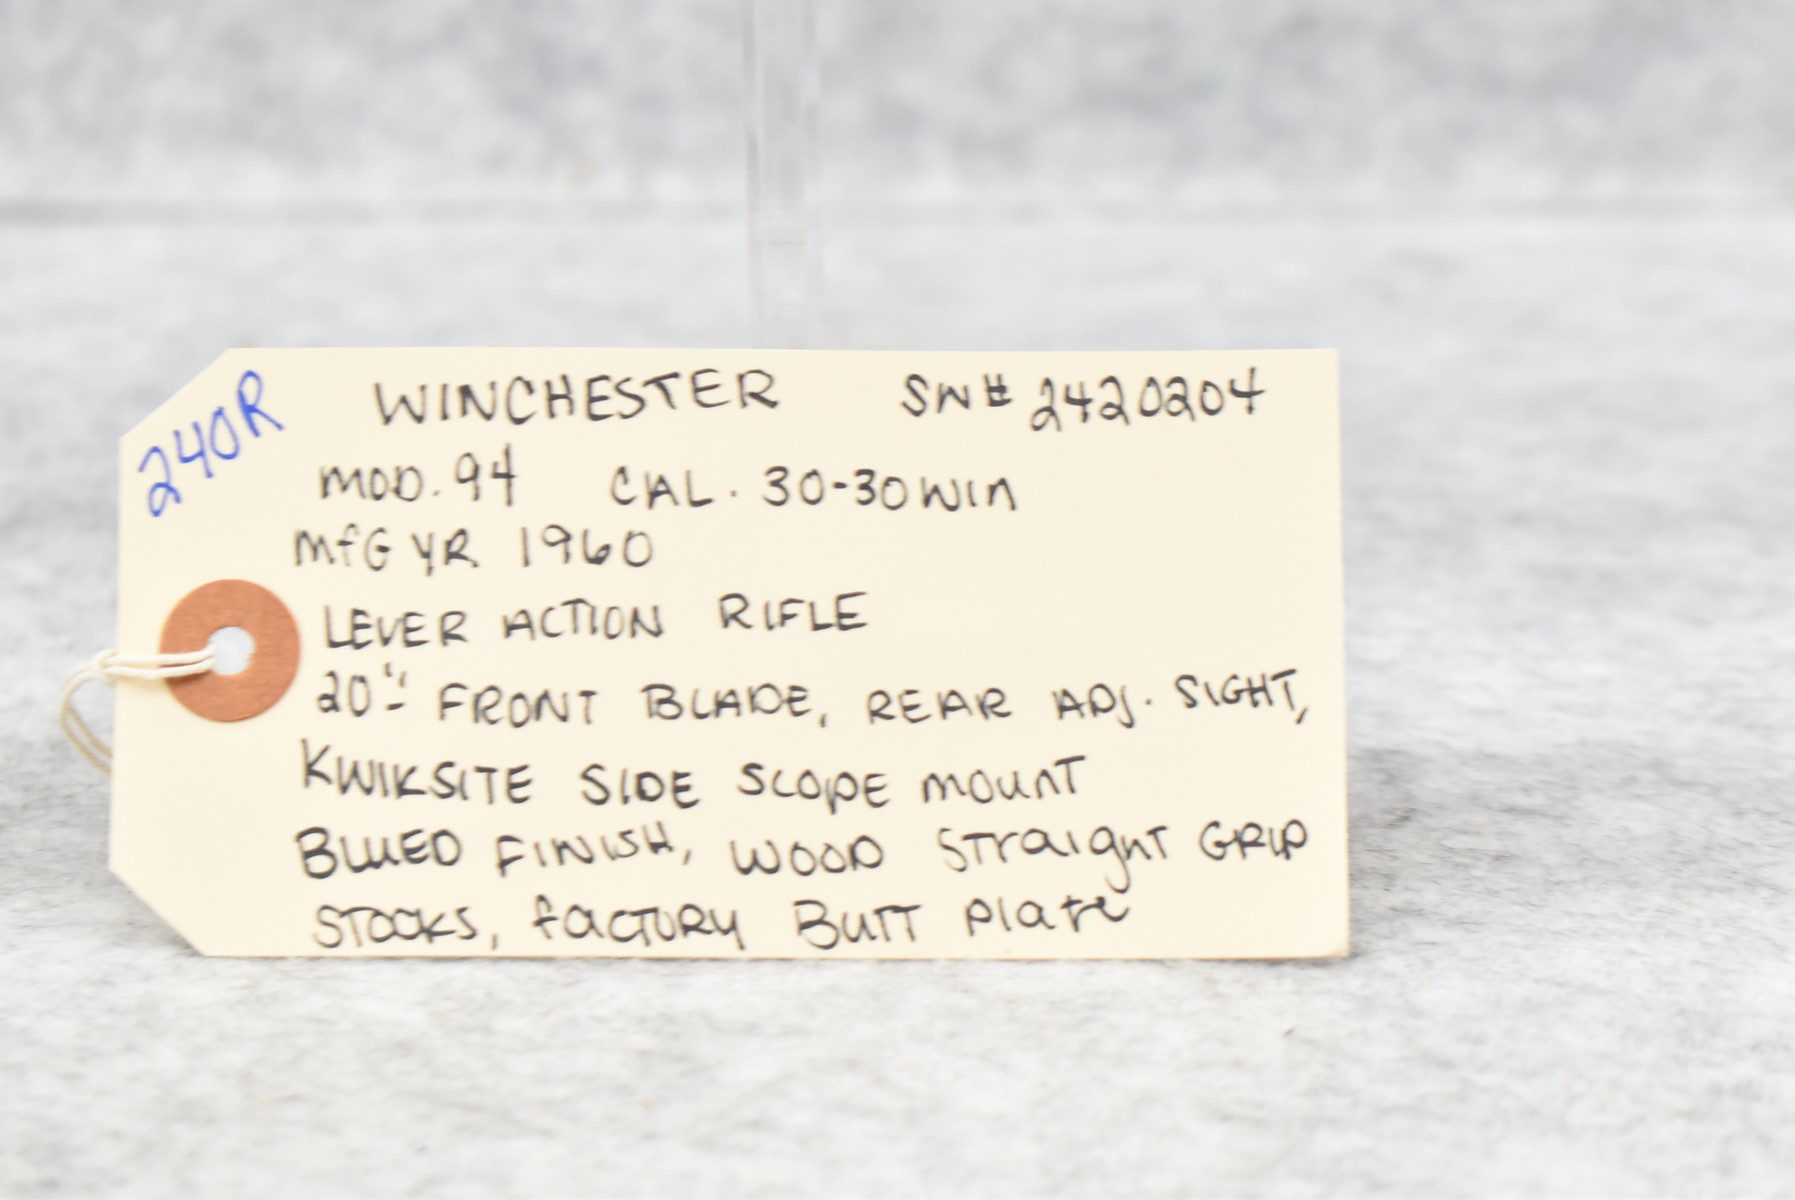 240R
WINCHESTER SN# 2420204
MOD. 94 CAL. 30-30 WIN
MFG YR 1960
LEVER ACTION RIFLE
20"- FRONT BLADE, REAR ADJ. SIGHT,
KWIKSITE SIDE SCOPE MOUNT
BLUED FINISH, WOOD STraIgHT GRIP
STOCKS, FACTORY BUTT Plate